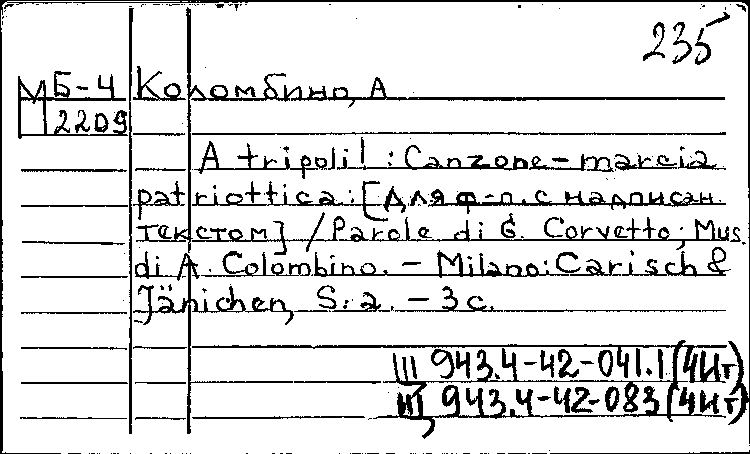 235
М Б-4 Коломбино, А
2209
A tripoli! : Canzone-marcia
patriottica : [Для ф-п. с надписан.
текстом] / Parole di G. Corvetto; Mus.
di A. Colombino. - Milano: Carisch &
Jänichen, S. a. - 3 c.
III 943.4-42-041.1 (4Ит)
943.4-42-083 (4Ит)